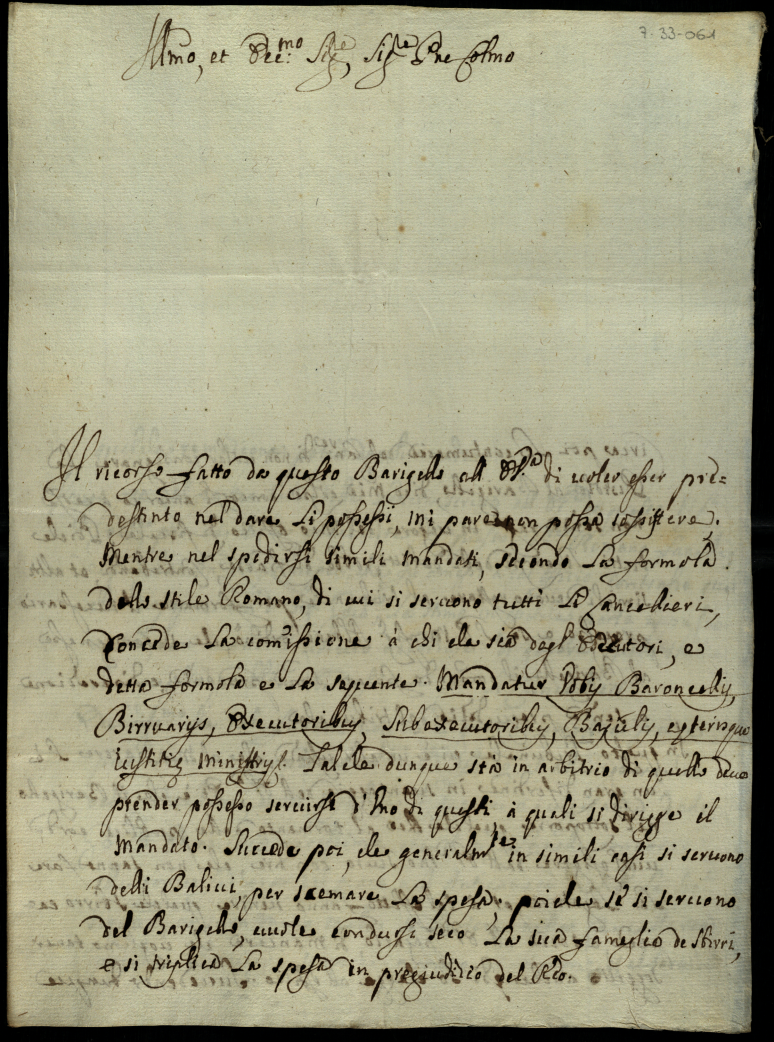 7-33-061
Illmo, et Ecc:mo Sig.re, Sig.re Pne Colmo
Il ricorso fatto da questo Barigello all' E.V.a di voler esser pre=
destinto nel dare Li possessi, mi pare non possa sossistere,
Mentre nel spedirsi simili mandati, secondo La formola
dello stile Romano, di cui si servono tutti Li Cancellieri,
Concede La comissione à chi che sia degl' Executori, e
detta formola e La seguente. Mandatur Vobis Baroncellis,
Birruarijs, Executoribus, Subexecutoribus, Bajulis, ceterisque
Iustitiæ Ministris. Talche dunque stà in arbitrio di quello deve
prender possesso servirsi d'Uno di questi, à quali si dirigge il
Mandato. Succede poi, che generalm.te in simili casi si servono
delli Balivi, per scemare La spesa, poiche se si servono
del Barigello, vuole condursi seco La sua fameglia de Sbirri,
e si triplica La spesa in pregiudicio del Reo.